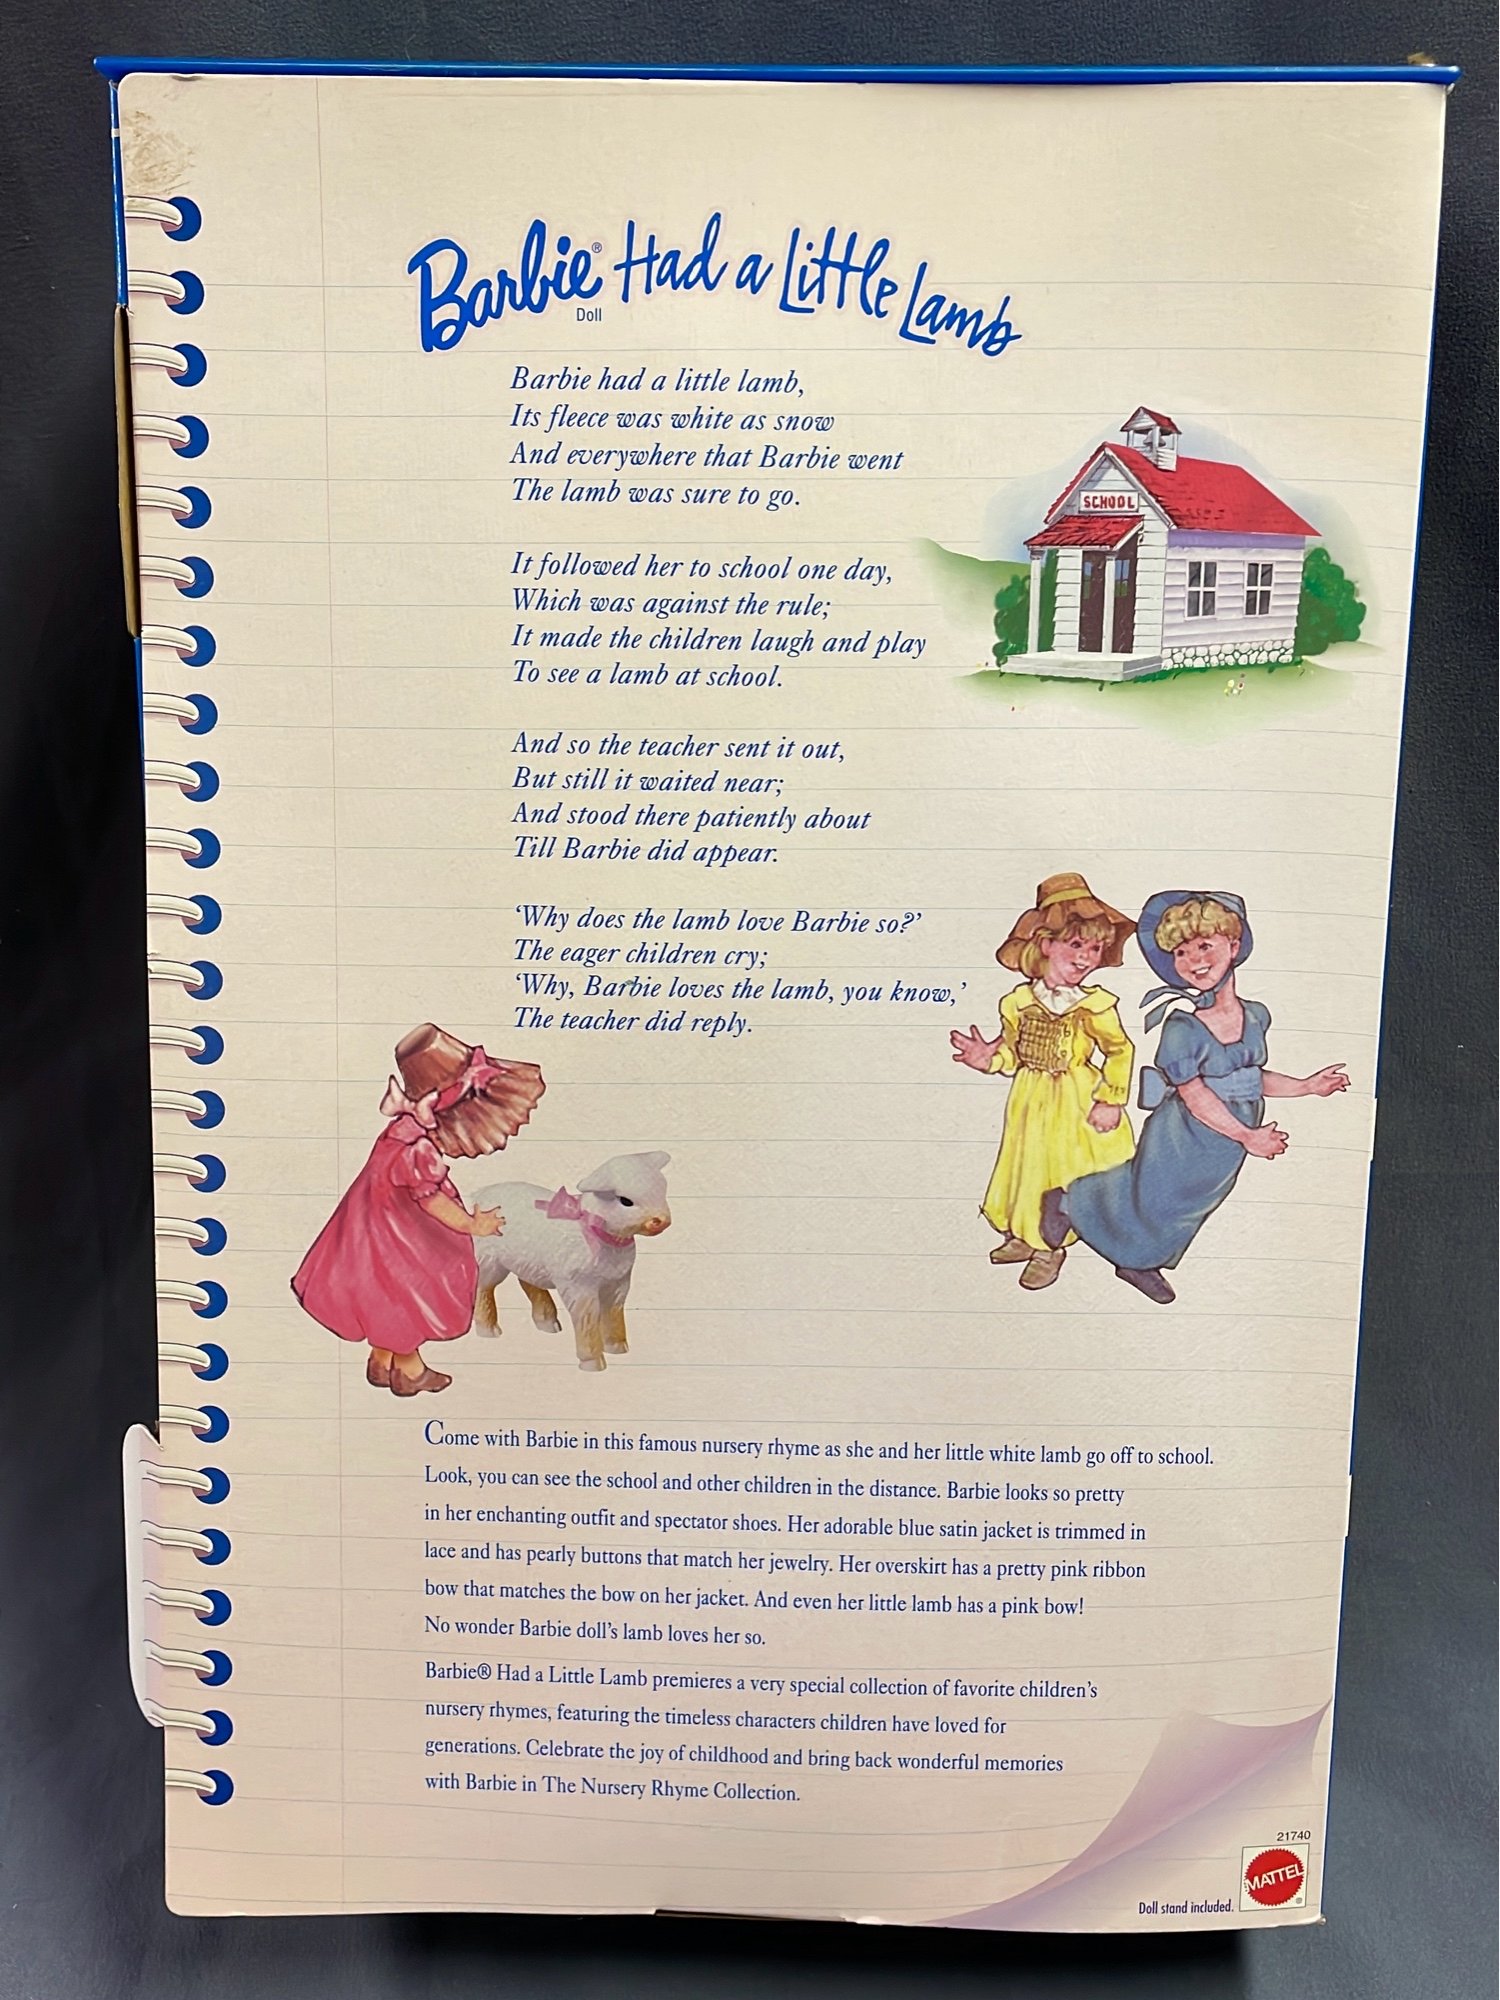 Barbie® Had a Little Lamb
Doll
Barbie had a little lamb,
Its fleece was white as snow
And everywhere that Barbie went
The lamb was sure to go.
It followed her to school one day,
Which was against the rule;
It made the children laugh and play
To see a lamb at school.
SCHOOL
And so the teacher sent it out,
But still it waited near;
And stood there patiently about
Till Barbie did appear.
‘Why does the lamb love Barbie so?’
The eager children cry;
‘Why, Barbie loves the lamb, you know,’
The teacher did reply.
Come with Barbie in this famous nursery rhyme as she and her little white lamb go off to school.
Look, you can see the school and other children in the distance. Barbie looks so pretty
in her enchanting outfit and spectator shoes. Her adorable blue satin jacket is trimmed in
lace and has pearly buttons that match her jewelry. Her overskirt has a pretty pink ribbon
bow that matches the bow on her jacket. And even her little lamb has a pink bow!
No wonder Barbie doll’s lamb loves her so.
Barbie® Had a Little Lamb premieres a very special collection of favorite children’s
nursery rhymes, featuring the timeless characters children have loved for
generations. Celebrate the joy of childhood and bring back wonderful memories
with Barbie in The Nursery Rhyme Collection.
21740
MATTEL
®
Doll stand included.